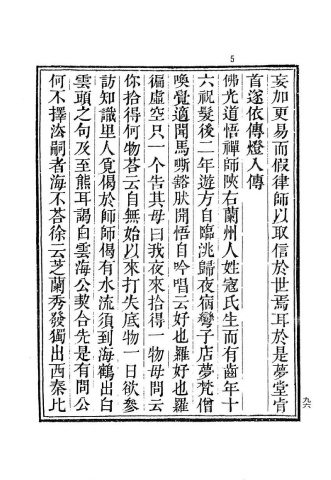 5
妄加更易而假律師以取信於世焉耳於是夢堂肯
首遂依傳燈入傳
佛光道悟禪師陝右蘭州人姓寇氏生而有齒年十
六祝髮後二年遊方自臨洮歸夜宿彎子店夢梵僧
喚覺適聞馬嘶豁肰開悟自吟唱云好也羅好也羅
徧虛空只一个告其母曰我夜來拾得一物母問云
你拾得何物荅云自無始以來打失底物一日欲參
訪知識里人覓偈於師師偈有水流須到海鶴出白
雲頭之句及至熊耳謁白雲海公契合先是有問公
何不擇法嗣者海不荅徐云芝蘭秀發獨出西秦比
九六